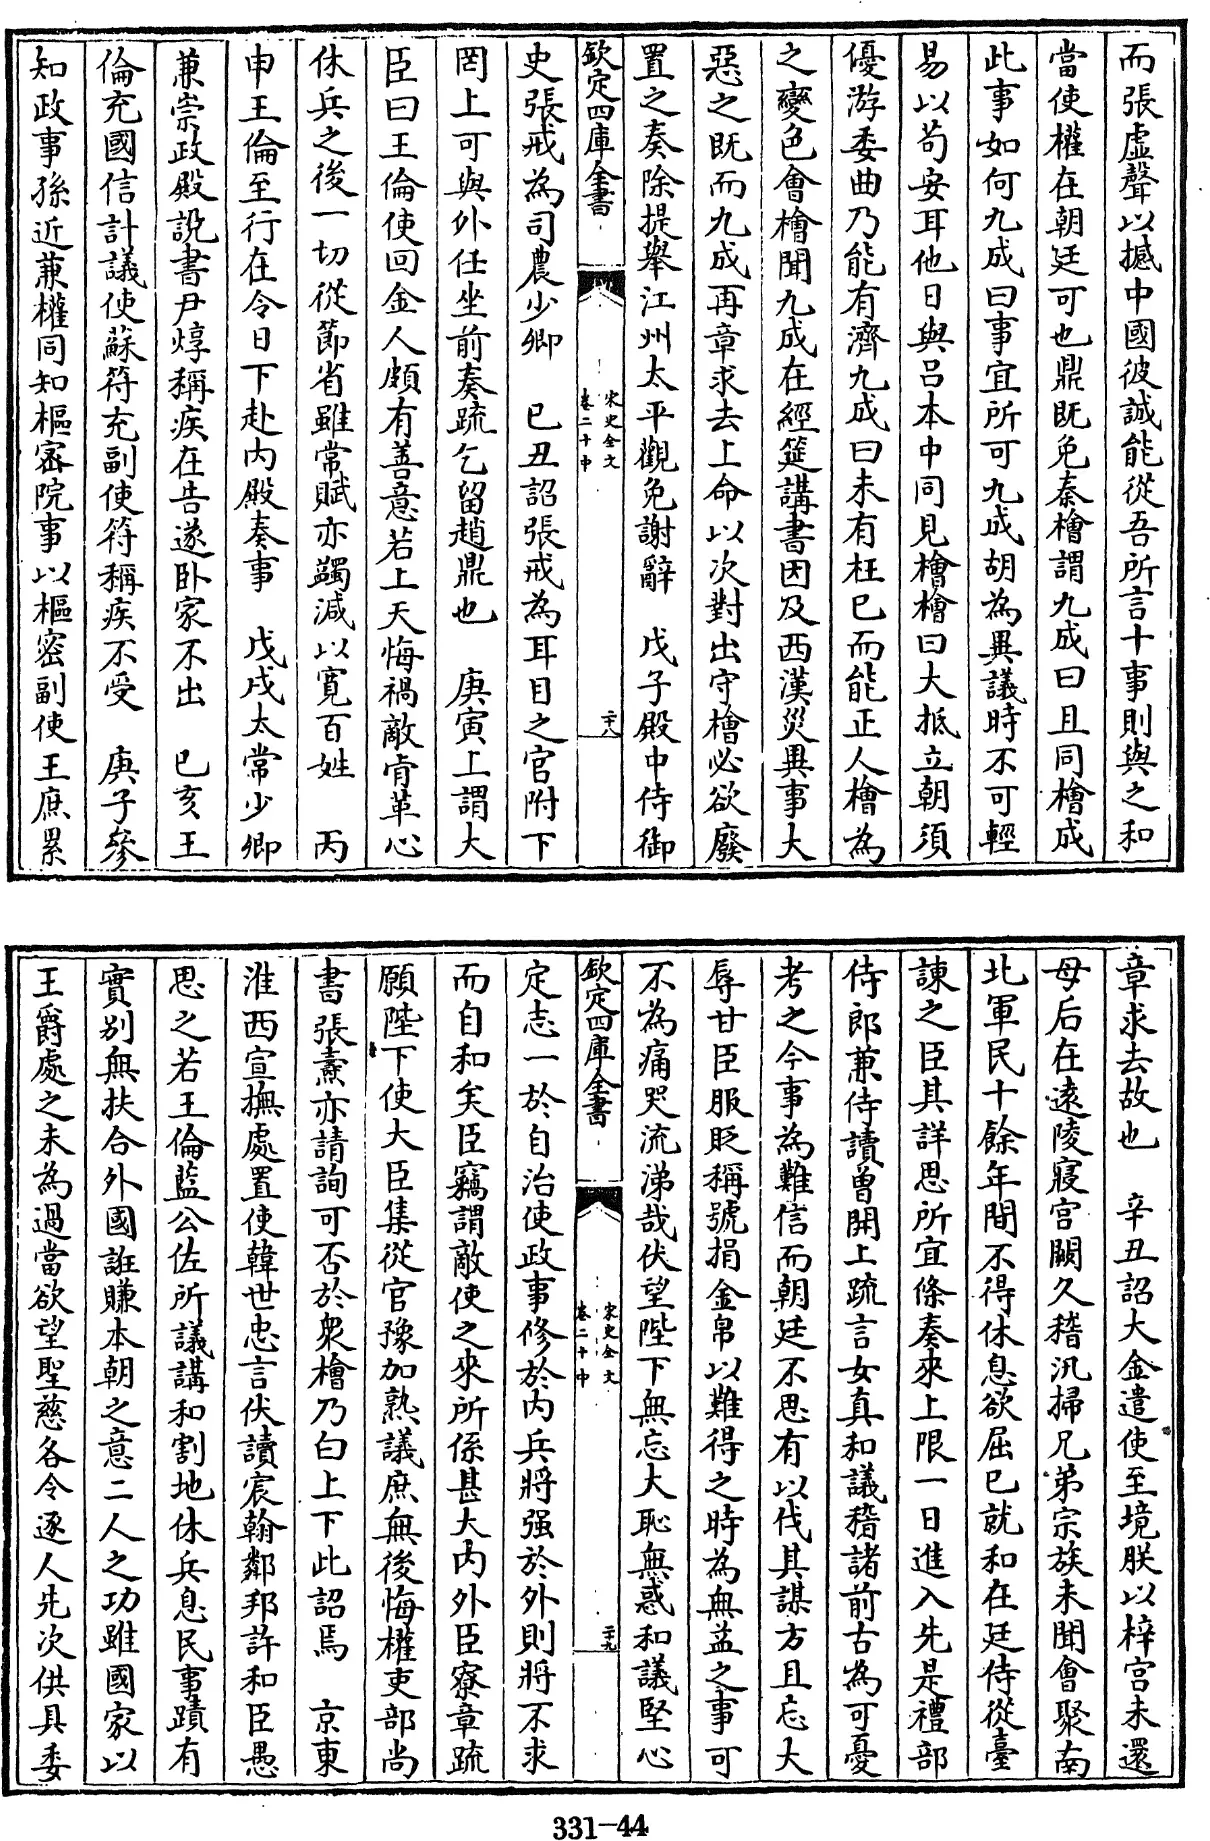 而張虛聲以撼中國彼誠能從吾所言十事則與之和
當使權在朝廷可也鼎既免秦檜謂九成曰且同檜成
此事如何九成曰事宜所可九成胡為異議時不可輕
易以苟安耳他日與呂本中同見檜檜曰大抵立朝須
優游委曲乃能有濟九成曰未有枉已而能正人檜為
之變色會檜聞九成在經筵講書因及西漢災異事大
惡之既而九成再章求去上命以次對出守檜必欲廢
置之奏除提舉江州太平觀免謝辭　戊子殿中侍御
欽定四庫全書
宋史全文
卷二十中
二十八
史張戒為司農少卿　已丑詔張戒為耳目之官附下
罔上可與外任坐前奏疏乞留趙鼎也　庚寅上謂大
臣曰王倫使回金人頗有善意若上天悔禍敵肯革心
休兵之後一切從節省雖常賦亦蠲減以寬百姓　丙
申王倫至行在今日下赴内殿奏事　戊戌太常少卿
兼崇政殿説書尹焞稱疾在告遂卧家不出　已亥王
倫充國信計議使蘇符充副使符稱疾不受　庚子參
知政事孫近兼權同知樞密院事以樞密副使王庶累
章求去故也　辛丑詔大金遣使至境朕以梓宮未還
母后在遠陵寢宮闕久稽汛掃兄弟宗族未聞會聚南
北軍民十餘年間不得休息欲屈已就和在廷侍從臺
諫之臣其詳思所宜條奏來上限一日進入先是禮部
侍郎兼侍讀曾開上疏言女真和議稽諸前古為可憂
考之今事為難信而朝廷不思有以伐其謀方且忘大
辱甘臣服貶稱號捐金帛以難得之時為無益之事可
不為痛哭流涕哉伏望陛下無忘大恥無惑和議堅心
欽定四庫全書
宋史全文
卷二十中
二十九
定志一於自治使政事修於内兵將强於外則將不求
而自和矣臣竊謂敵使之來所係甚大内外臣寮章疏
願陛下使大臣集從官豫加熟議庶無後悔權吏部尚
書張燾亦請詢可否於衆檜乃白上下此詔焉　京東
淮西宣撫處置使韓世忠言伏讀宸翰鄰邦許和臣愚
思之若王倫藍公佐所議講和割地休兵息民事蹟有
實别無扶合外國誑賺本朝之意二人之功雖國家以
王爵處之未為過當欲望聖慈各令逐人先次供具委
331-44